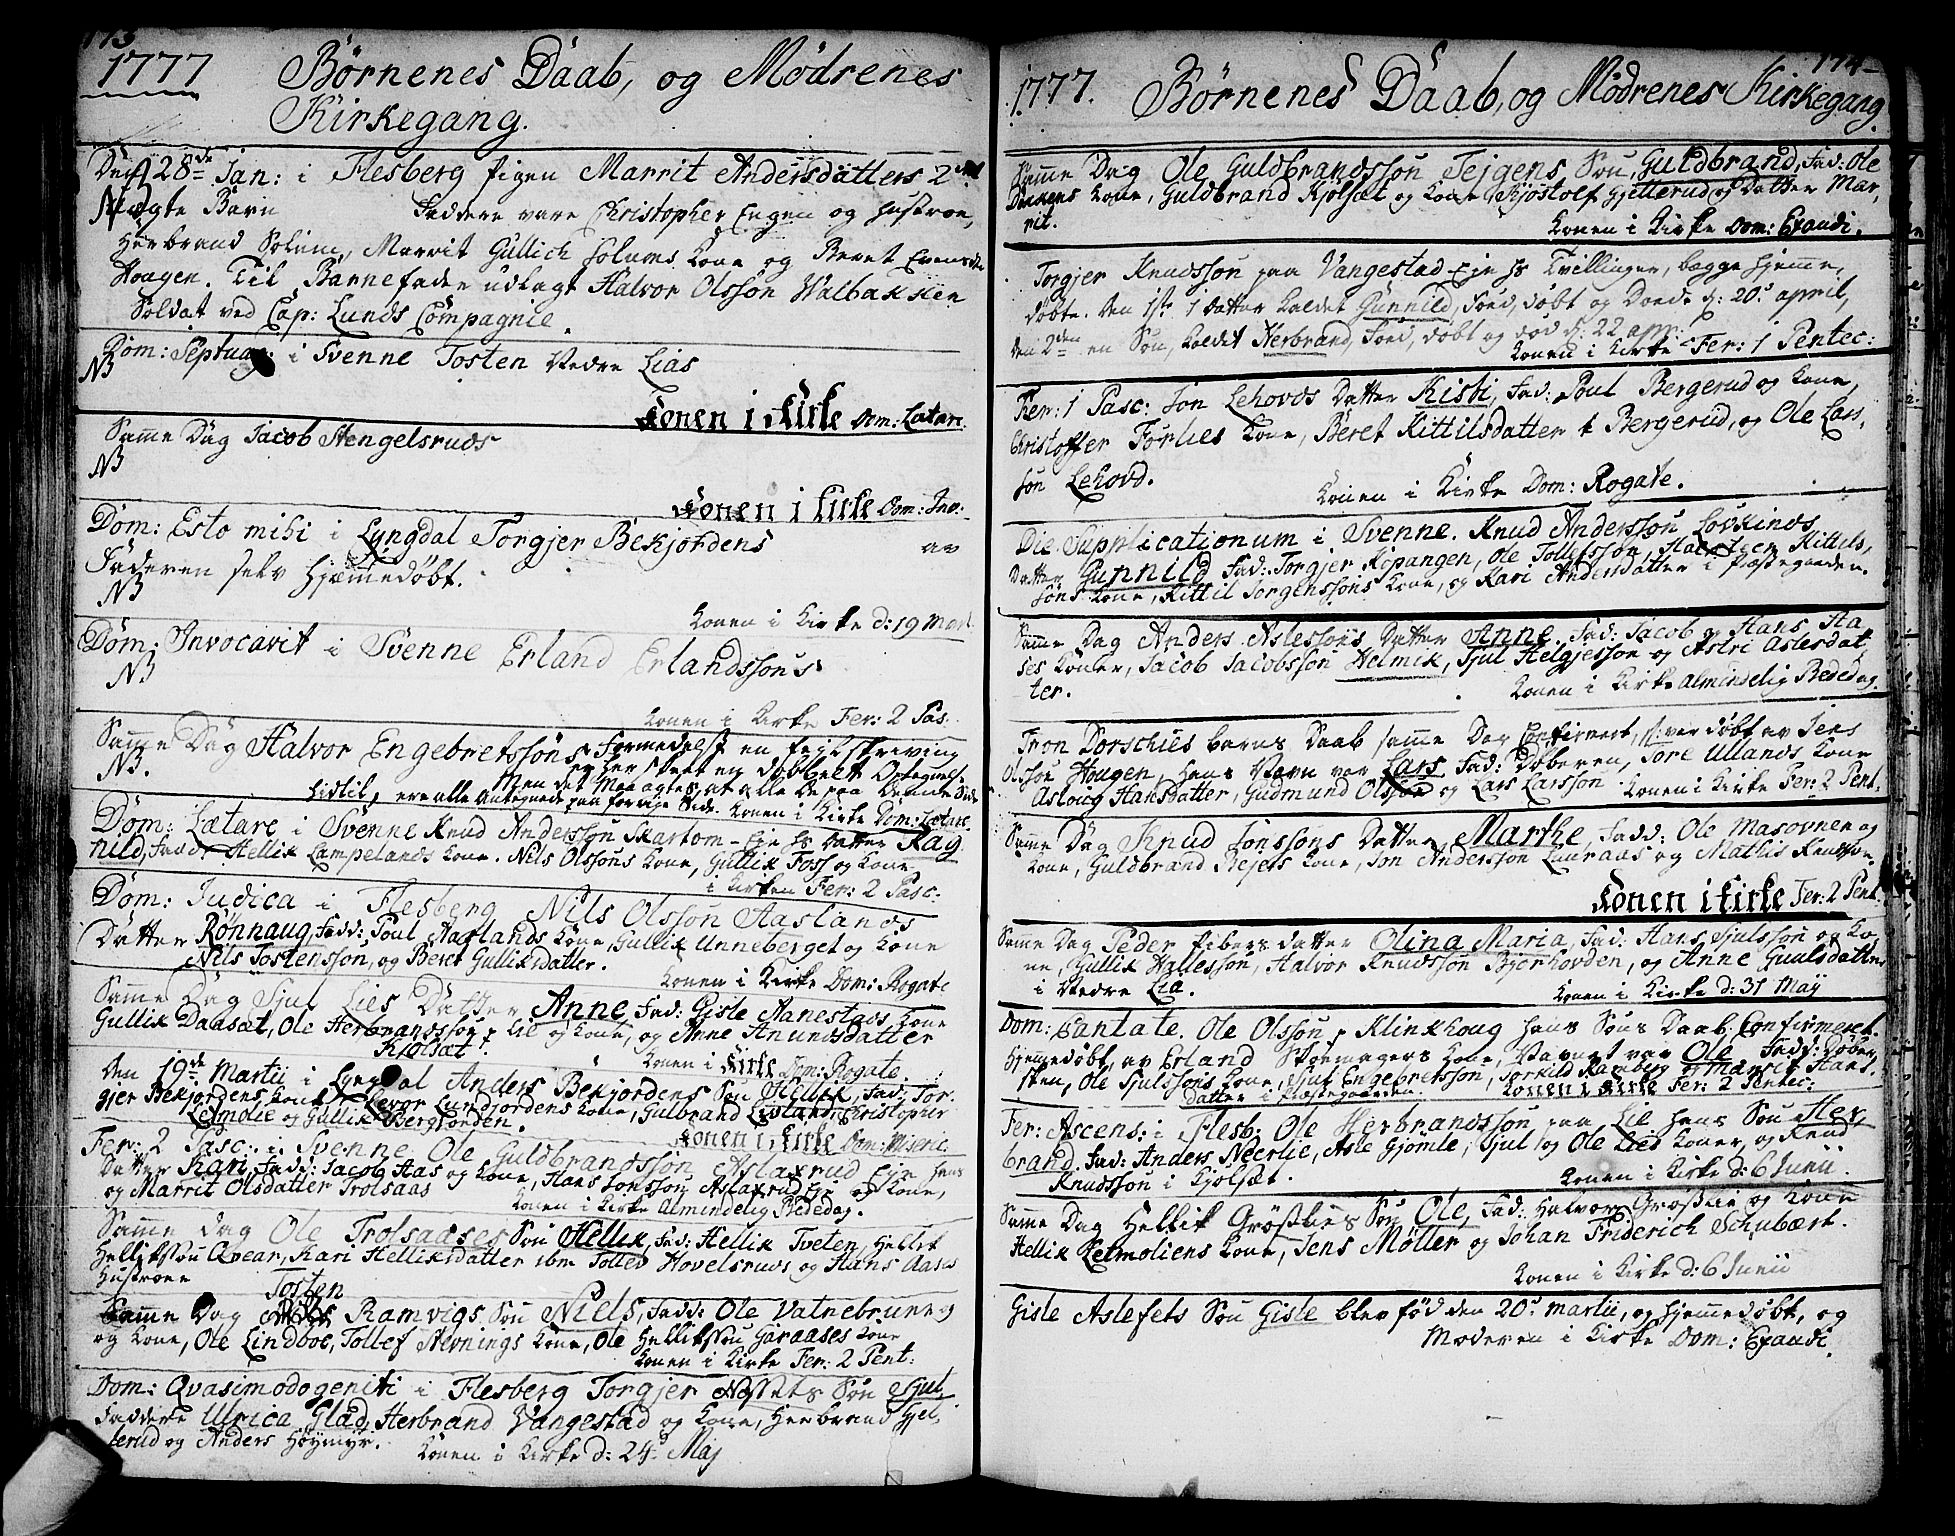 173
1777 Börnenes Daab, og Mödrenes
Kirkegang.
Den 28de Jan: i Flesberg pigen Marrit Andersdatters 2det
uægte Barn Faddere vare Christopher Engen og hustroe,
Herbrand Solum, Marrit Gullich Solums Kone og Beret Evensdr
Hougen. Til Barnefader udlagt Halvor Olssön Walbakken
Soldat ved Cap: Lunds Compagnie.
Dom: Septuag: i Svenne Tosten Vedre Lias
NB
Konen i Kirke Dom: Lætare.
Samme Dag Jacob Stengelsruds
NB
Konen i Kirke Dom: Inv:
Dom: Esto mihi i Lyngdal Torgjer Bekjordens av
Faderen selv hjemmedöbt.
NB
Konen i Kirke d: 19 Mart.
Dom: Invocavit i Svenne Erland Erlandssöns
NB
Konen i Kirke Fer: 2 Pas.
Samme Dag Halvor Engebretssöns Formedelst en fejlskriving
NB. er her skeet en dobbelt Optegnelse
Men det Mærkes, at alle de paa denne Side
hidtil, ere alle antegnede paa forrige Side. Konen i Kirke Dom: Lætare
Dom: Lætare i Svenne Knud Anderssön Skartom-Eje hs Datter Rag
nild, Fadd: Hellik Lampelands Kone. Nils Olssöns Kone, Gullik Foss og Kone.
i Kirken Fer: 2 Pasc:
Dom: Judica i Flesberg Nils Olssön Aaslands
Datter Rönnaug, Fadd: Poul Aaslands Kone, Gullik Unneberget og Kone
Nils Tostenssön, og Beret Gulliksdatter.
Konen i Kirke Dom: Rogate
Samme Dag Sjul Lies Datter Anne, Fad: Gisle Aanestads Kone
Gullik Daaset, Ole Herbrandssön p Lie og Kone, og Anne Anundsdatter
Kjölsæt.
Konen i Kirke Dom: Rogate.
Den 19de Martii i Lyngdal Anders Bekjordens Sön Hellik, Fad: Tor-
gjer Bekjordens Kone, Halvor Lundjordens Kone, Gulbrand Livland, Christopher
Lesmolie og Gullik Bergjorden.
Konen i Kirke Dom: Miseric.
Fer: 2 Pasc: i Svenne Ole Guldbrandssön Aslaxrud Eje hans
Datter Kari, Fadd: Jacob Aas og Kone, Hans Jonssön Aslaxrud Eje og Kone,
og Marrit Olsdatter Trolsaas
Konen i Kirke Almindelig Bededag.
Samme dag Ole Trolsaases Sön Hellik, Fad: Hellik Tveten, Hellik
Helliksön Qvear, Kari Helliksdatter ibm Tollef Hovelsruds og Hans Aases
Hustroer
Tosten
Samme Dag Ramvigs Sön Niels, Fadd: Ole Vatnebrunn
og Kone, Ole Lindboe, Tollef Stevnings Kone, Ole Helliksön Garaases Kone
Konen i Kirke Fer: 2 Pent:
Dom: Qvasimodogeniti i Flesberg Torgjer Sön Sjul,
Faddere Ulrica Glad, Herbrand Vangestad og Kone, Herbrand Gjel-
terud og Anders Höymyr.
Konen i Kirke d: 24 Maj
174
1777. Börnenes Daab, og Mödrenes Kirkegang.
Samme Dag Ole Guldbrandssön Tejgens Sön, Guldbrand, Fad: Ole
Kone, Guldbrand Kjölsæt og Kone Kjöstolf Gjetterud og Datter Mar-
rit.
Konen i Kirke Dom: Exaudi.
Torgjer Knudssön paa Vangestad Eje hs Tvillinger, begge hjemme
döbte. Den 1ste 1 datter kaldet Gunnild, Föed, döbt og Döede d: 20 april,
Den 2den en Sön, kaldet Herbrand, Föed, döbt og död d: 22 apr:
Konen i Kirke Fer: 1 Pentec:
Fer: 1 Pasc: Jon Lehovds Datter Kisti, Fad: Poul Bergerud og Kone,
Christoffer Forlies Kone, Beret Kittilsdatter t Bergerud, og Ole Lars-
sön Lehovd.
Konen i Kirke Dom: Rogate.
Die Supplicationum i Svenne. Knud Anderssön Lövkinds
Datter Gunnild Fad: Torgjer Kopangen, Ole Tollefssön, Kittils-
söns Kone, Kittil Torgenssöns Kone, og Kari Andersdatter i Præstegaarden.
Samme Dag Anders Aslessöns Datter Anne, Fad: Jacob og Hans Aa
ses Koner, Jacob Jacobssön Helmik, Sjul Helgjessön og Astri Aslesdat
ter.
Konen i Kirke Almindelig Bededag.
Tron Dorschies Barns Daab samme Dag Confirmert, var döbt av Jens
Olssön Hougen, hans Navn var Lars Fad: Döberen, Tore Ullands Kone
Asloug Hansdatter, Gudmund Olssön og Lars Larssön Konen i Kirke Fer: 2 Pent.
Samme Dag Knud Jonssöns Datter Marthe, Fadd: Ole Masovnen og
Kone, Guldbrand Rejers Kone, Jon Anderssön Lauraas og Mathis Knudssön.
Konen i Kirke Fer: 2 Pent.
Samme Dag Peder Fibers datter Olina Maria, Fad: Hans Sjulssön og Ko-
ne, Gullik Hallessön, Halvor Knudssön Bjerhovden, og Anne Guulsdatter
i Vedre Lia.
Konen i Kirke d: 31 Maij
Dom: Cantate. Ole Olssön p Klinkhoug hans Söns Daab Confirmeret.
Hjemmedöbt, av Erland Skomagers Kone, Navnet var Ole, Fadd: Döber-
sken, Ole Sjulssöns Kone, Sjul Engebretssön, Torkild Ramberg og Marrit Hans-
datter i Præstegaarden. Konen i Kirke Fer: 2 Pentec:
Fer: Ascens: i Flesb: Ole Herbrandssön paa Lie hans Sön Her-
brand, Fad: Anders Neerlie, Asle Gjömle, Sjul og Ole Lies Koner, og Knud
Knudssön i Kjölsæt.
Konen i Kirke d: 6 Junii.
Samme Dag Hellik Gröslies Sön Ole, Fad: Halvor Gröslie og Kone
Hellik Lesmoliens Kone, Jens Möller og Johan Friderich Schubært.
Konen i Kirke d: 6 Junii
Gisle Aslefets Sön Gisle blev föd den 20 martii, og hjemmedöbt, og
Moderen i Kirke Dom: Exaudi.